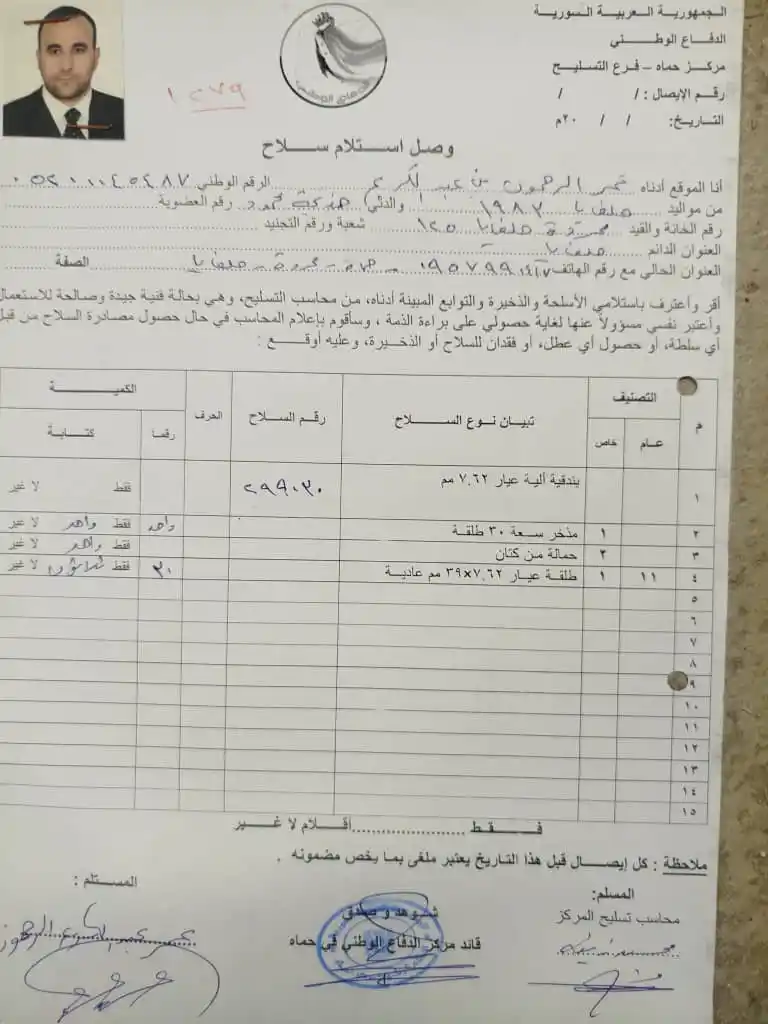 الجمهورية العربية السورية
الدفاع الوطني
مركز حماه – فرع التسليح
رقم الإيصال: / /
التاريخ: / / ٢٠م
الدفاع الوطني
١٢٧٩
وصل استلام سلاح
أنا الموقع أدناه الرحمون بن عبد الكريم الرقم الوطني
من مواليد حلفايا ١٩٨٢ والدتي رقم العضوية
رقم الخانة والقيد حلفايا ١٢٥ شعبة ورقم التجنيد
العنوان الدائم حلفايا
العنوان الحالي مع رقم الهاتف حماه – محردة – حلفايا الصفة
أقر وأعترف باستلامي الأسلحة والذخيرة والتوابع المبينة أدناه، من محاسب التسليح، وهي بحالة فنية جيدة وصالحة للاستعمال
وأعتبر نفسي مسؤولاً عنها لغاية حصولي على براءة الذمة ، وسأقوم بإعلام المحاسب في حال حصول مصادرة السلاح من قبل
أي سلطة، أو حصول أي عطل، أو فقدان للسلاح أو الذخيرة، وعليه أوقع :
م التصنيف تبيان نوع السلاح رقم السلاح الحرف الكمية
عام خاص رقما كتابة
١ بندقية آلية عيار ٧.٦٢ مم ٢٩٩٠٣٠ فقط لا غير
٢ ١ مذخر سعة ٣٠ طلقة واحد فقط واحد لا غير
٣ ٢ حمالة من كتان فقط واحد لا غير
٤ ١١ ١ طلقة عيار ٧.٦٢×٣٩ مم عادية ٣٠ فقط ثلاثون لا غير
٥
٦
٧
٨
٩
١٠
١١
١٢
١٣
١٤
١٥
فقط أقلام لا غير
ملاحظة : كل إيصال قبل هذا التاريخ يعتبر ملغى بما يخص مضمونه .
المسلم:
محاسب تسليح المركز
شوهد وصدق
قائد مركز الدفاع الوطني في حماه
المستلم :